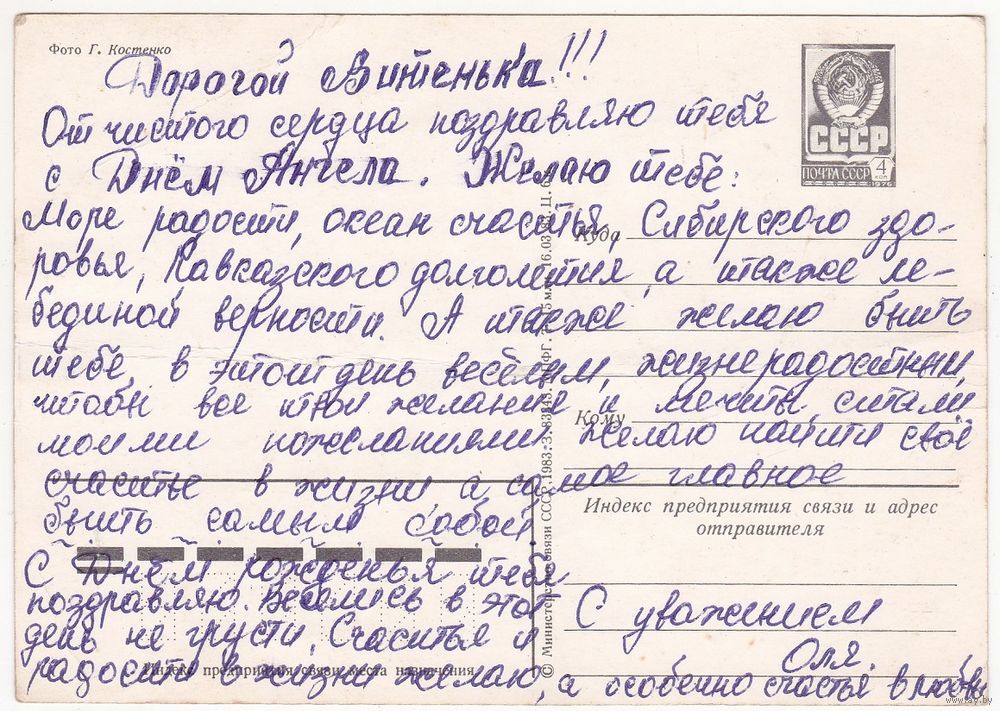 Фото Г. Костенко
Дорогой Витенька!!!
От чистого сердца поздравляю тебя
с Днём Ангела. Желаю тебе:
Море радости, океан счастья, Сибирского здо-
ровья, Кавказского долголетия, а также ле-
бединой верности. А также желаю быть
тебе, в этот день весёлым, жизнерадостным,
чтобы все твои желания и мечты, стали
моими пожеланиями. Желаю найти своё
счастье в жизни а самое главное
быть самым собой.
С Днём рожденья тебя
поздравляю. Веселись в этот
день не грусти, Счастье и
радости в жизни желаю, а особенно счастья в любви
С уважением
Оля.
ПОЧТА СССР
СССР
4
КОП
1976
Куда
Кому
Индекс предприятия связи и адрес
отправителя
Индекс предприятия связи места назначения
© Министерство связи СССР, 1983. З. 83343. ППФГ. 16.03.83. Ц.
www.ay.by